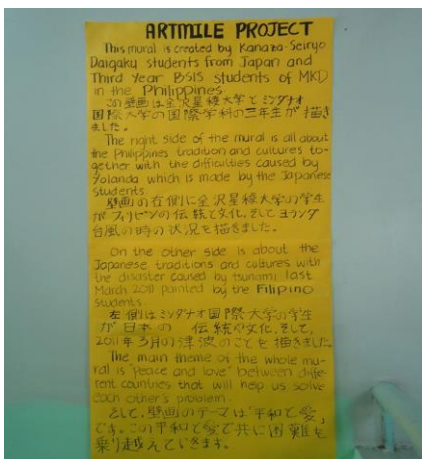 ARTMILE PROJECT
This mural is created by Kanaza-Seiryo
Daigaku students from Japan and
Third Year BSIS students of MKD
in the Philippines.
この壁画は金沢星稜大学とミンダナオ
国際大学の国際学科の三年生が描き
ました。
The right side of the mural is all about
the Philippines tradition and cultures to-
gether with the difficulties caused by
Yolanda which is made by the Japanese
students.
壁画の右側に金沢星稜大学の学生
がフィリピンの伝統と文化、そしてヨランダ
台風の時の状況を描きました。
On the other side is about the
Japanese traditions and cultures with
the disaster caused by tsunami last
March 2011 painted by the Filipino
students.
左側はミンダナオ国際大学の学生
が日本の 伝統や文化、そして、
2011年3月の津波のことを描きました。
The main theme of the whole mu-
ral is "Peace and love" between diffe-
rent countries that will help us solve
each other's problem.
そして、壁画のテーマは「平和と愛」
です。この平和と愛で共に困難を
乗り越えていきます。